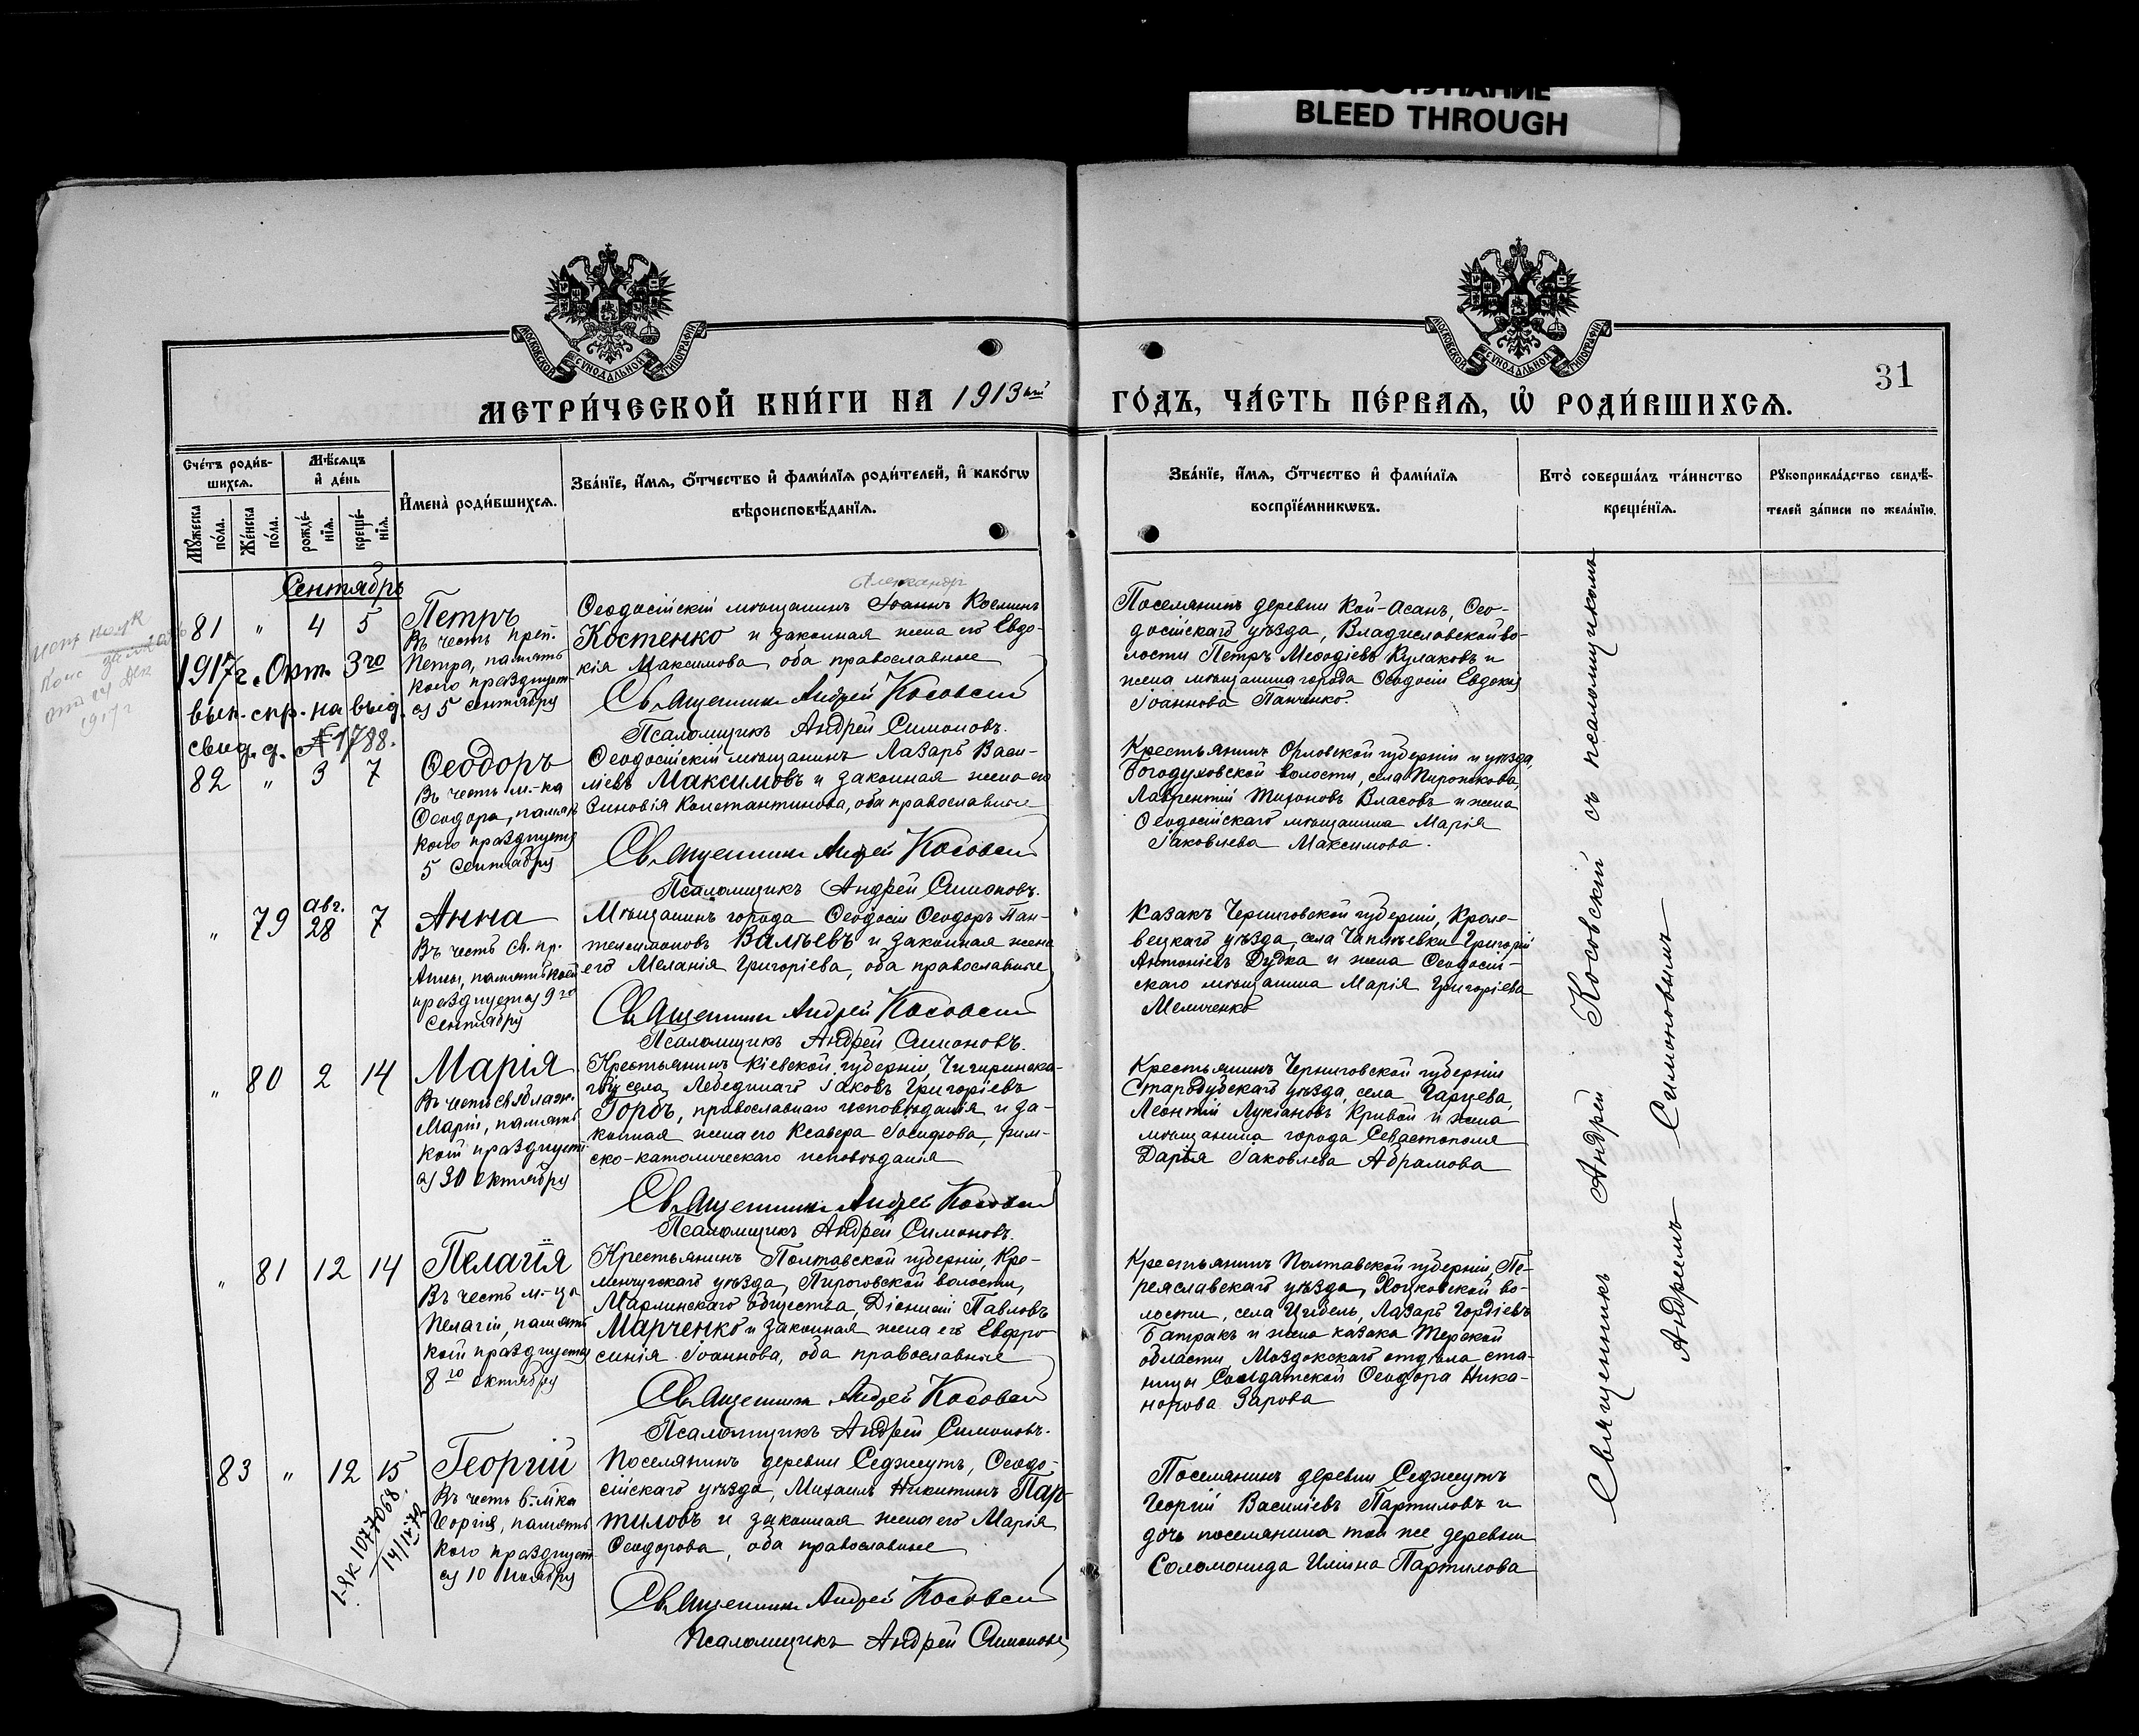 BLEED THROUGH
МОСКОВСКОЙ СѴНОДАЛЬНОЙ ТИПОГРАФІИ
МОСКОВСКОЙ СѴНОДАЛЬНОЙ ТИПОГРАФІИ
31
МЕТРИ́ЧЕСКОЙ КНИ́ГИ НА 1913ый ГО́ДЪ, ЧА́СТЬ ПЕ́РВАѦ, Ѡ҆ РОДИ́ВШИХСѦ.
Сче́тъ роди́в-
шихсѧ.
Мѣ́сѧцъ
и҆ де́нь
Мꙋ́жеска по́ла.
Же́нска по́ла.
рожде́-
нїѧ.
креще́-
нїѧ.
И҆мена̀ роди́вшихсѧ.
Зва́нїе, и҆́мѧ, ѻ҆́тчество и҆ фами́лїѧ роди́телей, и҆ како́гѡ
вѣроисповѣ́данїѧ.
Зва́нїе, и҆́мѧ, ѻ҆́тчество и҆ фами́лїѧ
воспрїе́мникѡвъ.
Кто̀ соверша́лъ та́инство
креще́нїѧ.
Рꙋкоприкла́дство свидѣ́-
телей за́писи по жела́нїю.
Сентябрь
81 " 4 5
Петръ
Въ честь преп.
Петра, память
коего празднует-
ся 5 сентября
1917 г. Окт. 3го
вып. спр. на выд.
свид. д. № 1788.
Александр
Ѳеодосійскій мѣщанинъ Іоаннъ Косминъ
Костенко и законная жена его Евдо-
кія Максимова, оба православные
Священникъ Андрей Косовскій
Псаломщикъ Андрей Симоновъ.
Поселянинъ деревни Кой-Асанъ, Ѳео-
досійскаго уѣзда, Владиславской во-
лости Петръ Меѳодіевъ Кулаковъ и
жена мѣщанина города Ѳеодосіи Евдокія
Іоаннова Панченко.
82 " 3 7
Ѳеодоръ
Въ честь м-ка
Ѳеодора, память
коего празднуется
5 сентября
Ѳеодосійскій мѣщанинъ Лазарь Васи-
ліевъ Максимовъ и законная жена его
Зиновія Константинова, оба православные
Священникъ Андрей Косовскій
Псаломщикъ Андрей Симоновъ.
Крестьянинъ Орловской губерніи и уѣзда,
Богодуховской волости, села Пирожкова,
Лаврентій Тихоновъ Власовъ и жена
Ѳеодосійскаго мѣщанина Марія
Іаковлева Максимова.
" 79 авг. 28 7
Анна
Въ честь св. пр.
Анны, память коей
празднуется 9го
сентября
Мѣщанинъ города Ѳеодосіи Ѳеодоръ Пан-
телеимоновъ Валѣевъ и законная жена
его Меланія Григоріева, оба православные
Священникъ Андрей Косовскій
Псаломщикъ Андрей Симоновъ.
Казакъ Черниговской губерніи, Кроле-
вецкаго уѣзда, села Чаплѣевки Григорій
Антоніевъ Дудка и жена Ѳеодосій-
скаго мѣщанина Марія Григоріева
Мельченко
" 80 2 14
Марія
Въ честь св. блаж.
Маріи, память
коей празднует-
ся 30 октября
Крестьянинъ Кіевской губерніи, Чигиринска-
го у села Лебединаго Іаковъ Григоріевъ
Горбъ, православнаго исповѣданія и за-
конная жена его Ксавера Іосифова, рим-
ско-католическаго исповѣданія
Священникъ Андрей Косовскій
Псаломщикъ Андрей Симоновъ.
Крестьянинъ Черниговской губерніи
Стародубскаго уѣзда, села Гарцева,
Леонтій Лукіановъ Кривой и жена
мѣщанина города Севастополя
Дарья Іаковлева Абрамова
" 81 12 14
Пелагія
Въ честь м-цы
Пелагіи, память
коей празднуется
8го октября
Крестьянинъ Полтавской губерніи, Кре-
менчугскаго уѣзда, Пироговской волости,
Марлинскаго общества, Діонисій Павловъ
Марченко и законная жена его Евфро-
синія Іоаннова, оба православные
Священникъ Андрей Косовскій
Псаломщикъ Андрей Симоновъ.
Крестьянинъ Полтавской губерніи, Пе-
реяславскаго уѣзда, Хоцковской во-
лости, села Цибель, Лазарь Гордіевъ
Батракъ и жена казака Терской
области, Моздокскаго отдѣла ста-
ницы Солдатской Ѳеодора Ника-
норова Зарова
83 " 12 15
Георгій
Въ честь в-м-ка
Георгія, память
коего празднует-
ся 10 ноября
1-ЯК 1077068.
Поселянинъ деревниСеджеутъ, Ѳеодо-
сійскаго уѣзда, Михаилъ Никитинъ Пар-
тиловъ и законная жена его Марія
Ѳеодорова, оба православные
Священникъ Андрей Косовскій
Псаломщикъ Андрей Симоновъ
Поселянинъ деревни Седжеутъ
Георгій Василіевъ Партиловъ и
дочь поселянина той же деревни
Соломонида Иліина Партилова
Священникъ Андрей Косовскій съ псаломщикомъ
Андреемъ Симоновымъ